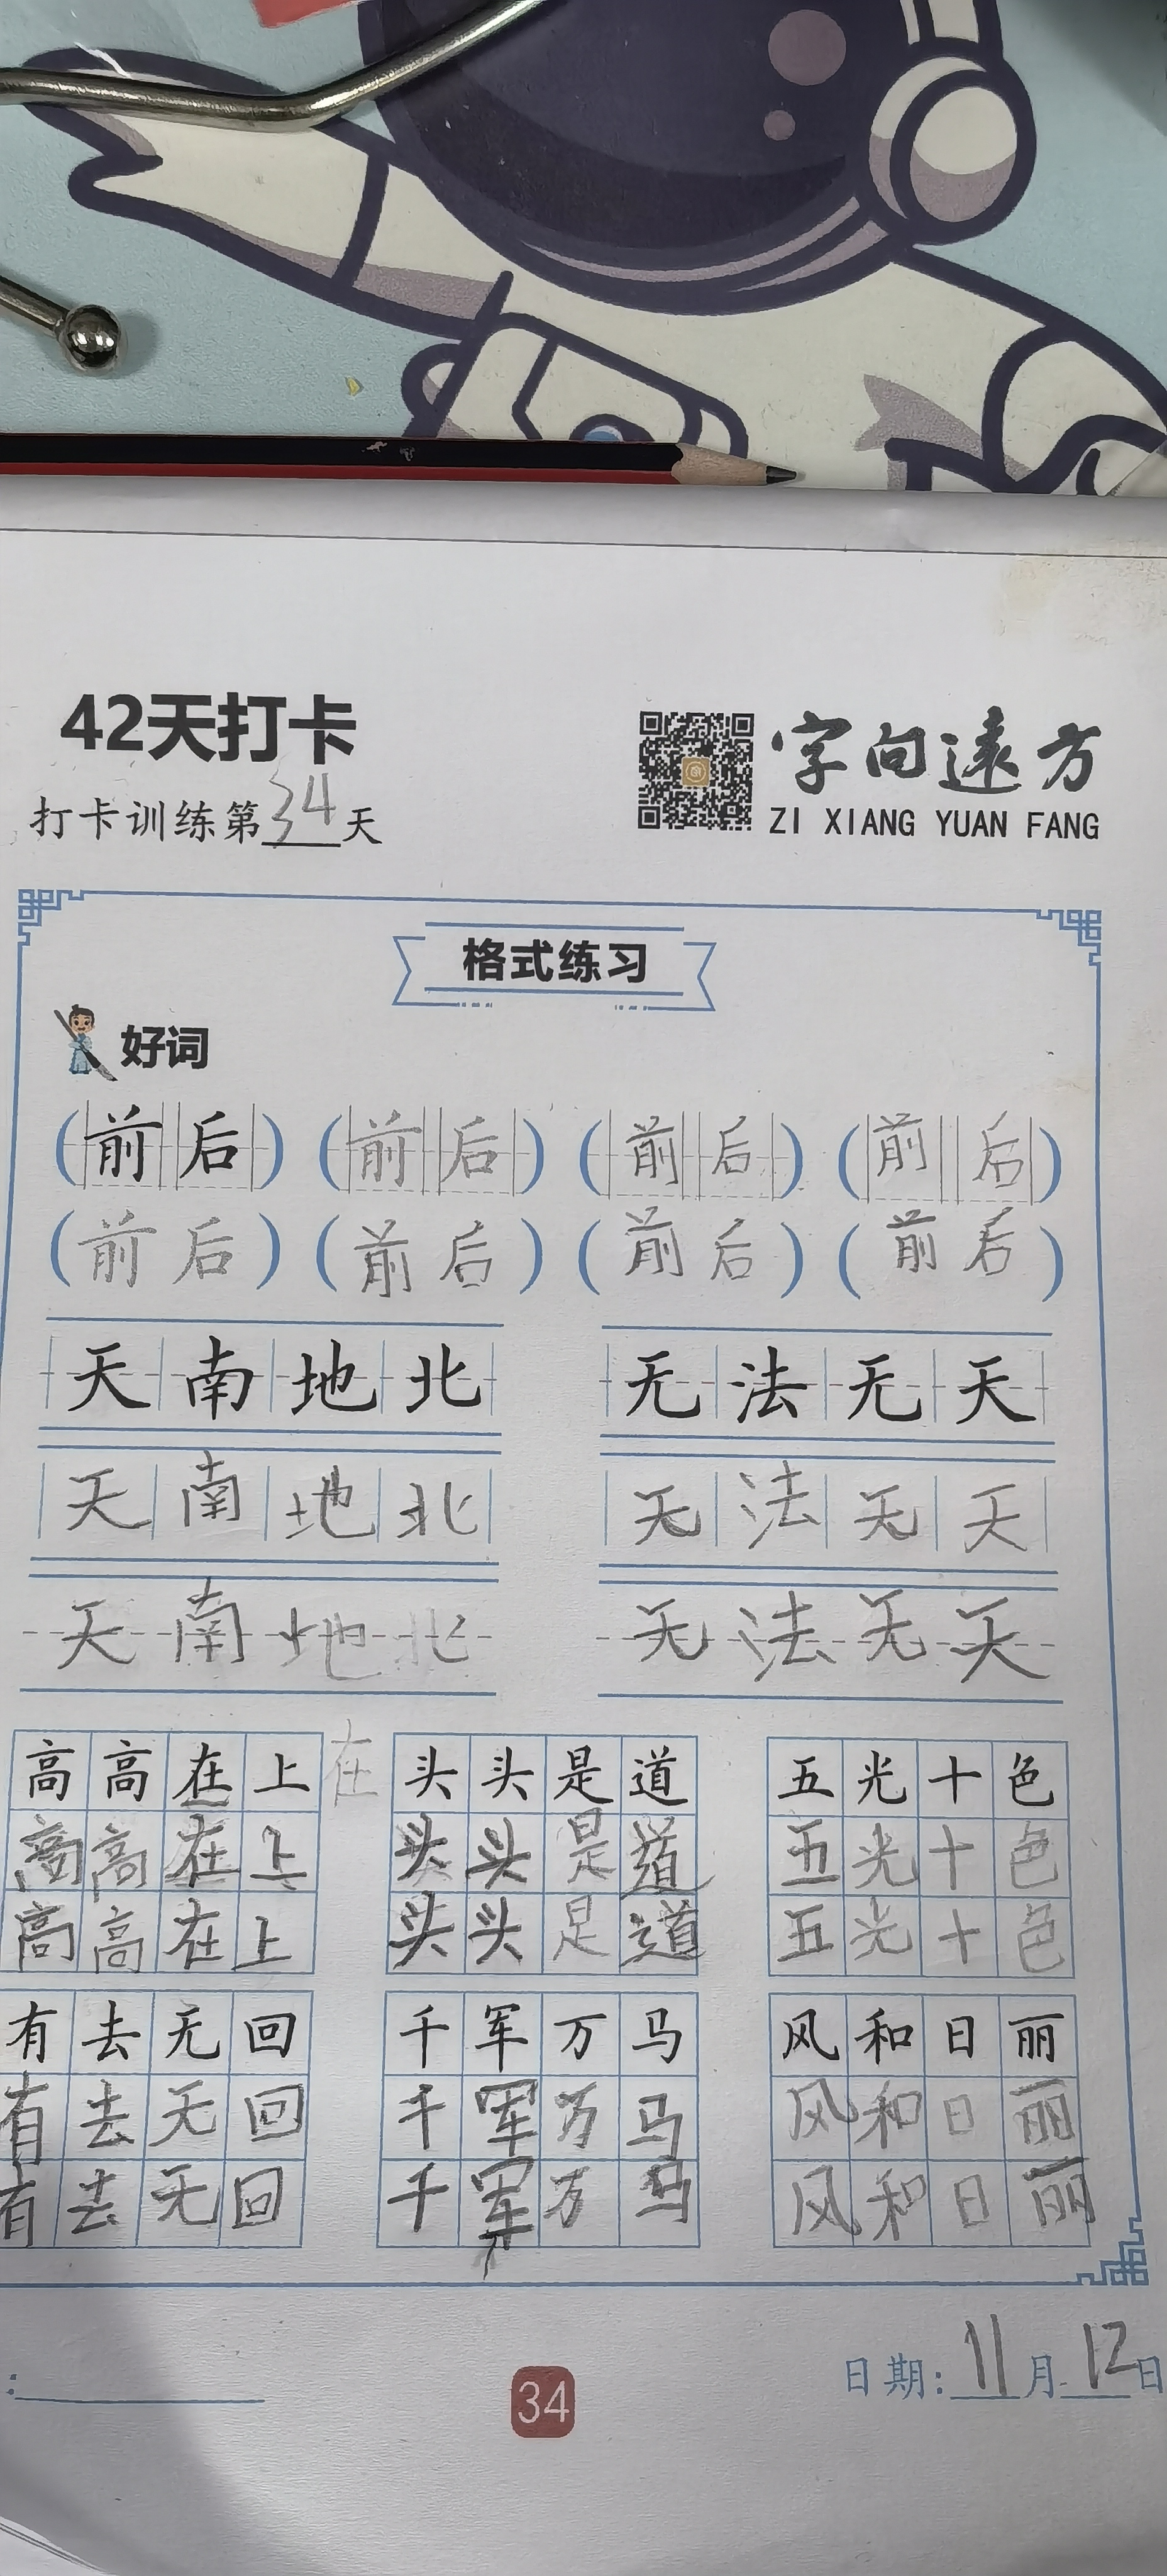 42天打卡
字向遠方
打卡训练第34天
ZI XIANG YUAN FANG
格式练习
好词
(前后) (前后) (前后) (前后)
(前后) (前后) (前后) (前后)
天南地北 无法无天
天南地北 无法无天
天南地北 无法无天
高高在上 在 头头是道 五光十色
高高在上 头头是道 五光十色
高高在上 头头是道 五光十色
有去无回 千军万马 风和日丽
有去无回 千军万马 风和日丽
有去无回 千军万马 风和日丽
日期:11月12日
34